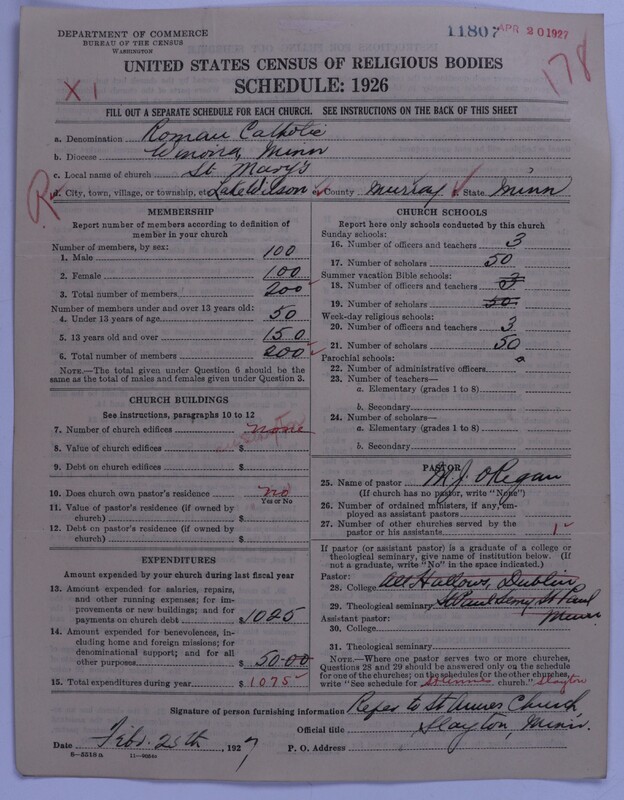 DEPARTMENT OF COMMERCE
BUREAU OF THE CENSUS
WASHINGTON
11807 APR 20 1927
178
UNITED STATES CENSUS OF RELIGIOUS BODIES
SCHEDULE: 1926
X 1
FILL OUT A SEPARATE SCHEDULE FOR EACH CHURCH. SEE INSTRUCTIONS ON THE BACK OF THIS SHEET
a. Denomination Roman Catholic
b. Diocese Winona, Minn
c. Local name of church St Mary's
R
d. City, town, village, or township, etc Lake Wilson e. County Murray f. State Minn
MEMBERSHIP
Report number of members according to definition of
member in your church
Number of members, by sex:
1. Male 100
2. Female 100
3. Total number of members 200
Number of members under and over 13 years old:
4. Under 13 years of age 50
5. 13 years old and over 150
6. Total number of members 200
NOTE.—The total given under Question 6 should be
the same as the total of males and females given under Question 3.
CHURCH BUILDINGS
See instructions, paragraphs 10 to 12
7. Number of church edifices none
8. Value of church edifices $
9. Debt on church edifices $
10. Does church own pastor's residence no
Yes or No
11. Value of pastor's residence (if owned by
church) $
12. Debt on pastor's residence (if owned by
church) $
EXPENDITURES
Amount expended by your church during last fiscal year
13. Amount expended for salaries, repairs,
and other running expenses; for im-
provements or new buildings; and for
payments on church debt $1025
14. Amount expended for benevolences,
including home and foreign missions; for
denominational support; and for all
other purposes $50-00
15. Total expenditures during year $1075
CHURCH SCHOOLS
Report here only schools conducted by this church
Sunday schools:
16. Number of officers and teachers 3
17. Number of scholars 50
Summer vacation Bible schools:
18. Number of officers and teachers 3
19. Number of scholars 50
Week-day religious schools:
20. Number of officers and teachers 3
21. Number of scholars 50
Parochial schools:
22. Number of administrative officers
23. Number of teachers—
a. Elementary (grades 1 to 8)
b. Secondary
24. Number of scholars—
a. Elementary (grades 1 to 8)
b. Secondary
PASTOR
25. Name of pastor M J. O'Regan
(If church has no pastor, write "None")
26. Number of ordained ministers, if any, em-
ployed as assistant pastors
27. Number of other churches served by the
pastor or his assistants 1
If pastor (or assistant pastor) is a graduate of a college or
theological seminary, give name of institution below. (If
not a graduate, write "No" in the space indicated.)
Pastor:
28. College All Hallows, Dublin
29. Theological seminary St Paul Semy, St Paul
Minn
Assistant pastor:
30. College
31. Theological seminary
NOTE.—Where one pastor serves two or more churches,
Questions 28 and 29 should be answered only on the schedule
for one of the churches; on the schedules for the other churches,
write "See schedule for St Annes church." Slayton
Signature of person furnishing information Refer to St Annes Church
Official title Slayton, Minn.
Date Feb. 25th, 1927 P. O. Address
8—5518 a